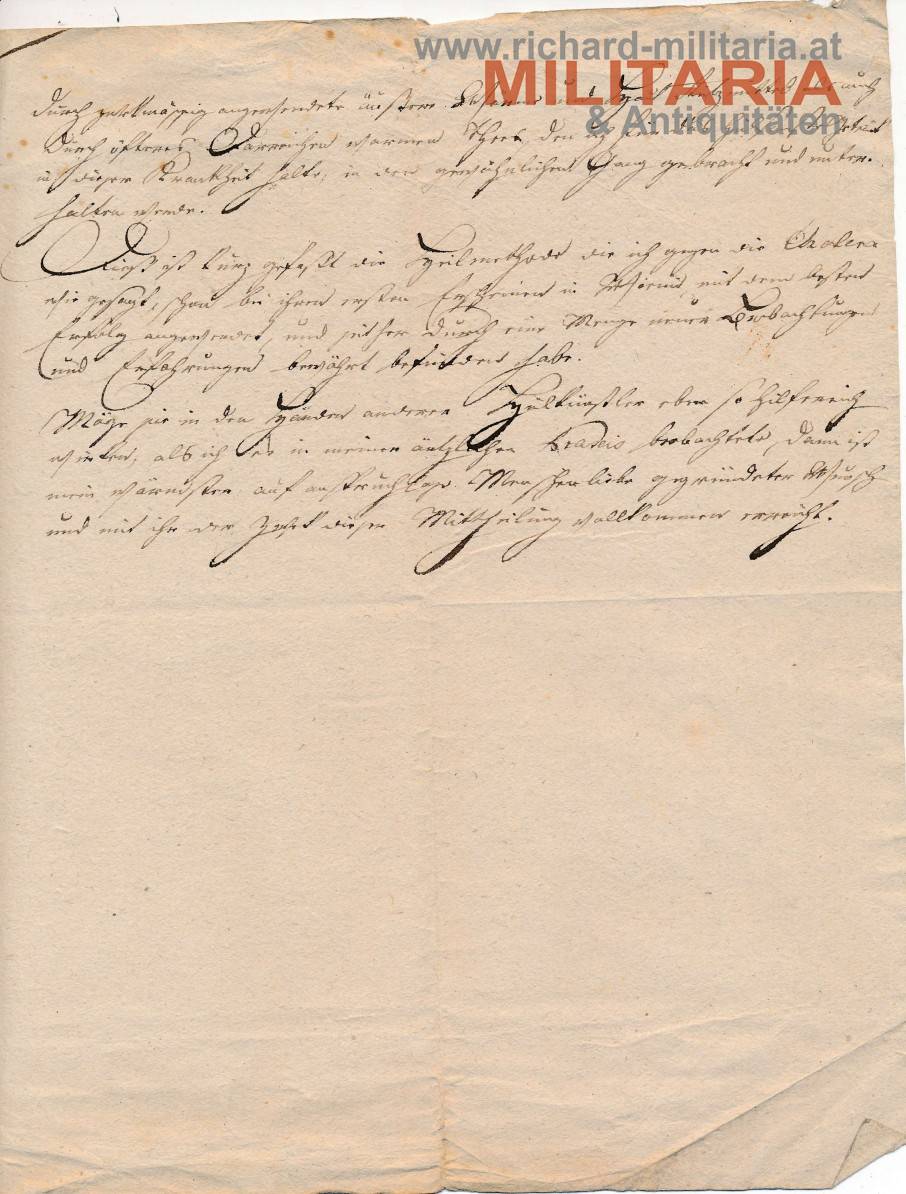 www.richard-militaria.at
MILITARIA
& Antiquitäten
durch zwekmässig angewendete äussere Wärme und auch
durch öfteres Darreichen warmen Thees, den ich
in dieser Krankheit halte, in den gewöhnlichen Gang gebracht und unter-
halten werde.
Dieß ist kurz gefaßt die Heilmethode die ich gegen die Cholera
wie gesagt, schon bei ihren ersten Erscheinen in mit dem besten
Erfolg angewendet, und seither durch eine Menge neuer Beobachtungen
und Erfahrungen bewährt befunden habe.
Möge sie in den Händen anderer Heilkünstler eben so hilfreich
wirken, als ich es in meiner ärztlichen Praxis beobachtete, dann ist
mein wärmster auf anspruchlose Menschenliebe gegründeter Wunsch
und mit ihm der Zwek dieser Mittheilung vollkommen erreicht.